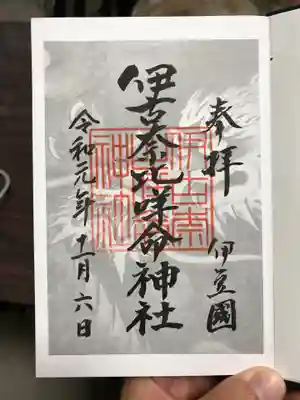 奉拝
伊豆國
伊古奈比咩命神社
令和元年十一月六日